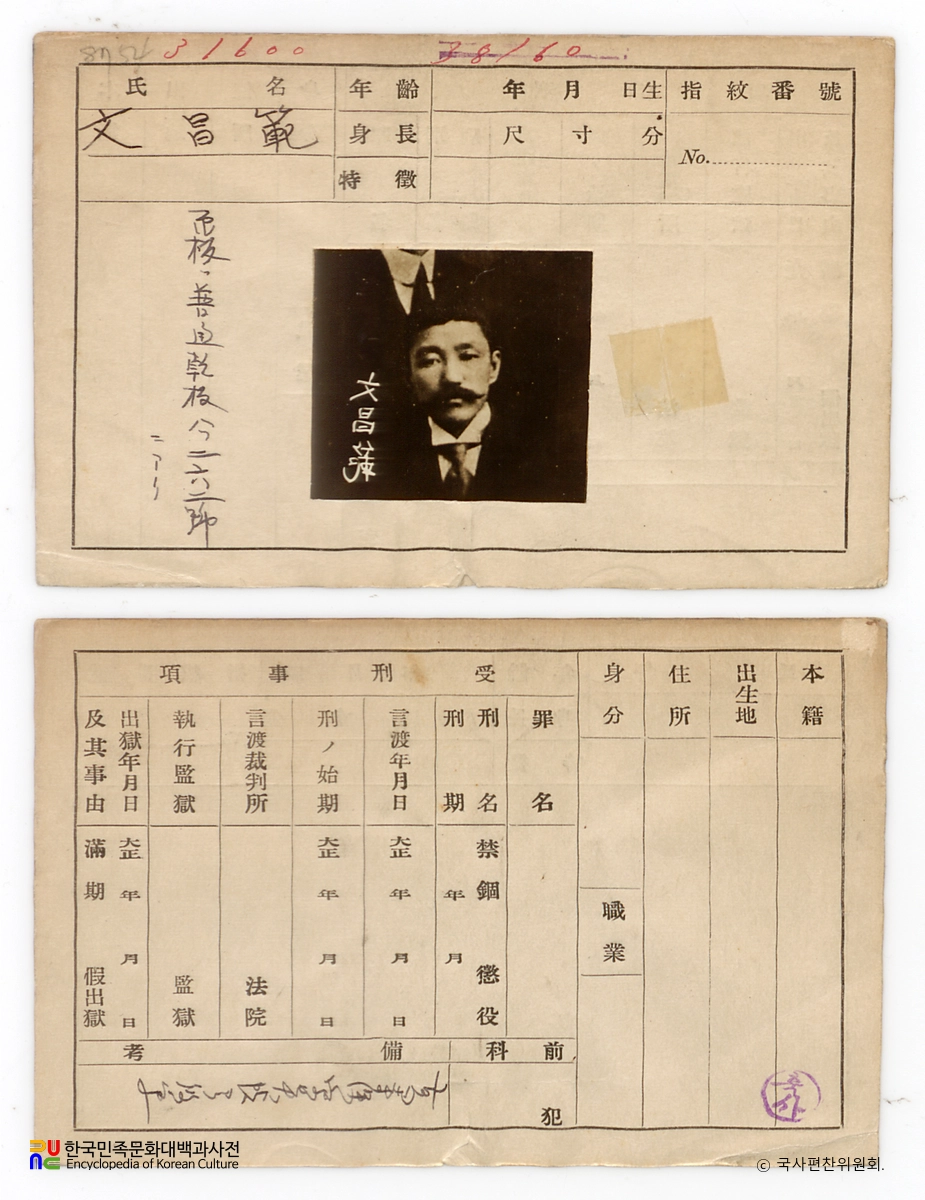 31600
38160
氏名
年齡
年 月 日生
指紋番號
文昌範
身長
尺 寸 分
No.
特徵
原板ハ普通乾板
二六二號
ニアリ
文昌範
本籍
出生地
住所
身分
職業
受刑事項
罪名
刑名
禁錮 懲役
刑期
年 月
言渡年月日
大正 年 月 日
刑ノ始期
大正 年 月 日
言渡裁判所
法院
執行監獄
監獄
出獄年月日
及其事由
大正 年 月 日
滿期 假出獄
前科
犯
備考
한국민족문화대백과사전
Encyclopedia of Korean Culture
© 국사편찬위원회.